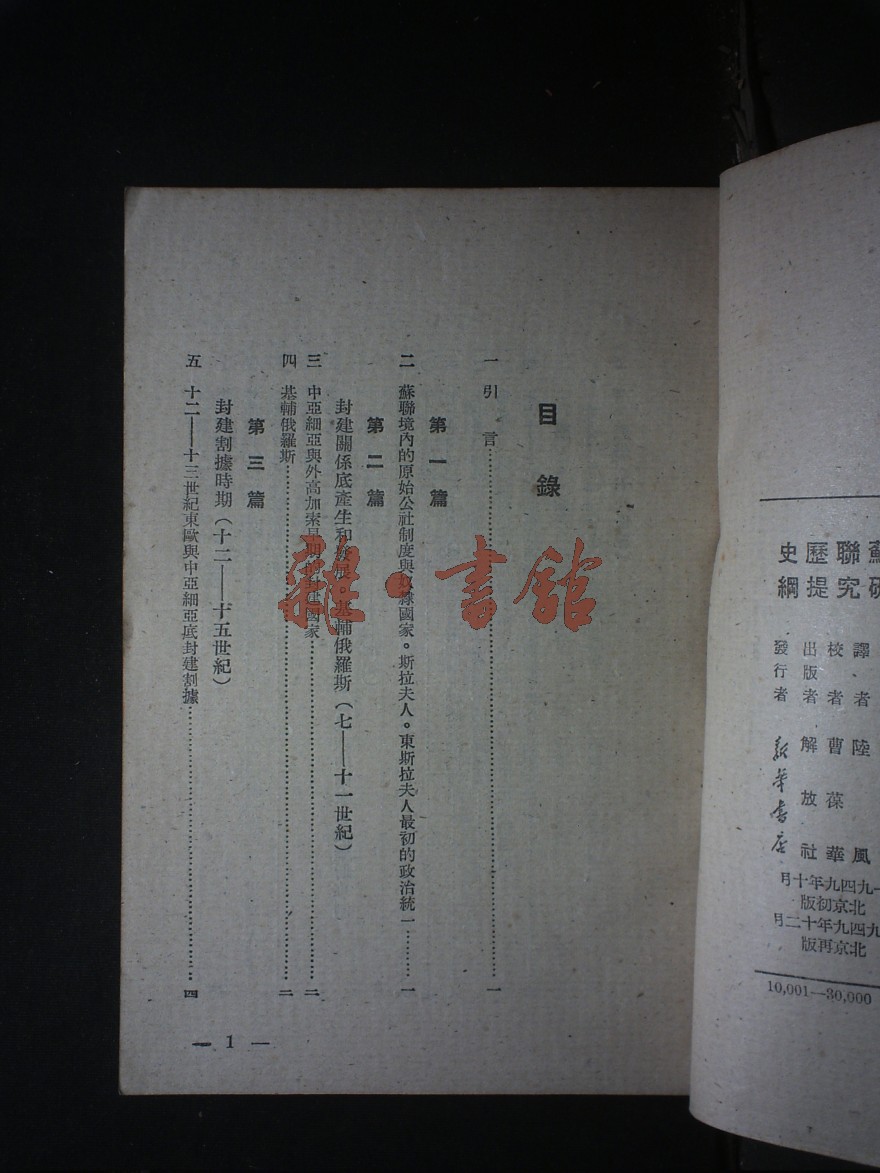 蘇聯歷史
研究提綱
譯者 陸風
校者 曹葆華
出版者 解放社
發行者 新華書店
一九四九年十月
北京初版
九四九年十二月
北京再版
10,001—30,000
目錄
一 引言……一
第一篇
二 蘇聯境內的原始公社制度與奴隸國家。斯拉夫人。東斯拉夫人最初的政治統一……一
第二篇
封建關係底產生和發展 基輔俄羅斯(七——十一世紀)
三 中亞細亞與外高加索早期的封建國家……二
四 基輔俄羅斯……二
第三篇
封建割據時期(十二——十五世紀)
五 十二——十三世紀東歐與中亞細亞底封建割據……四
— 1 —
雜·書館